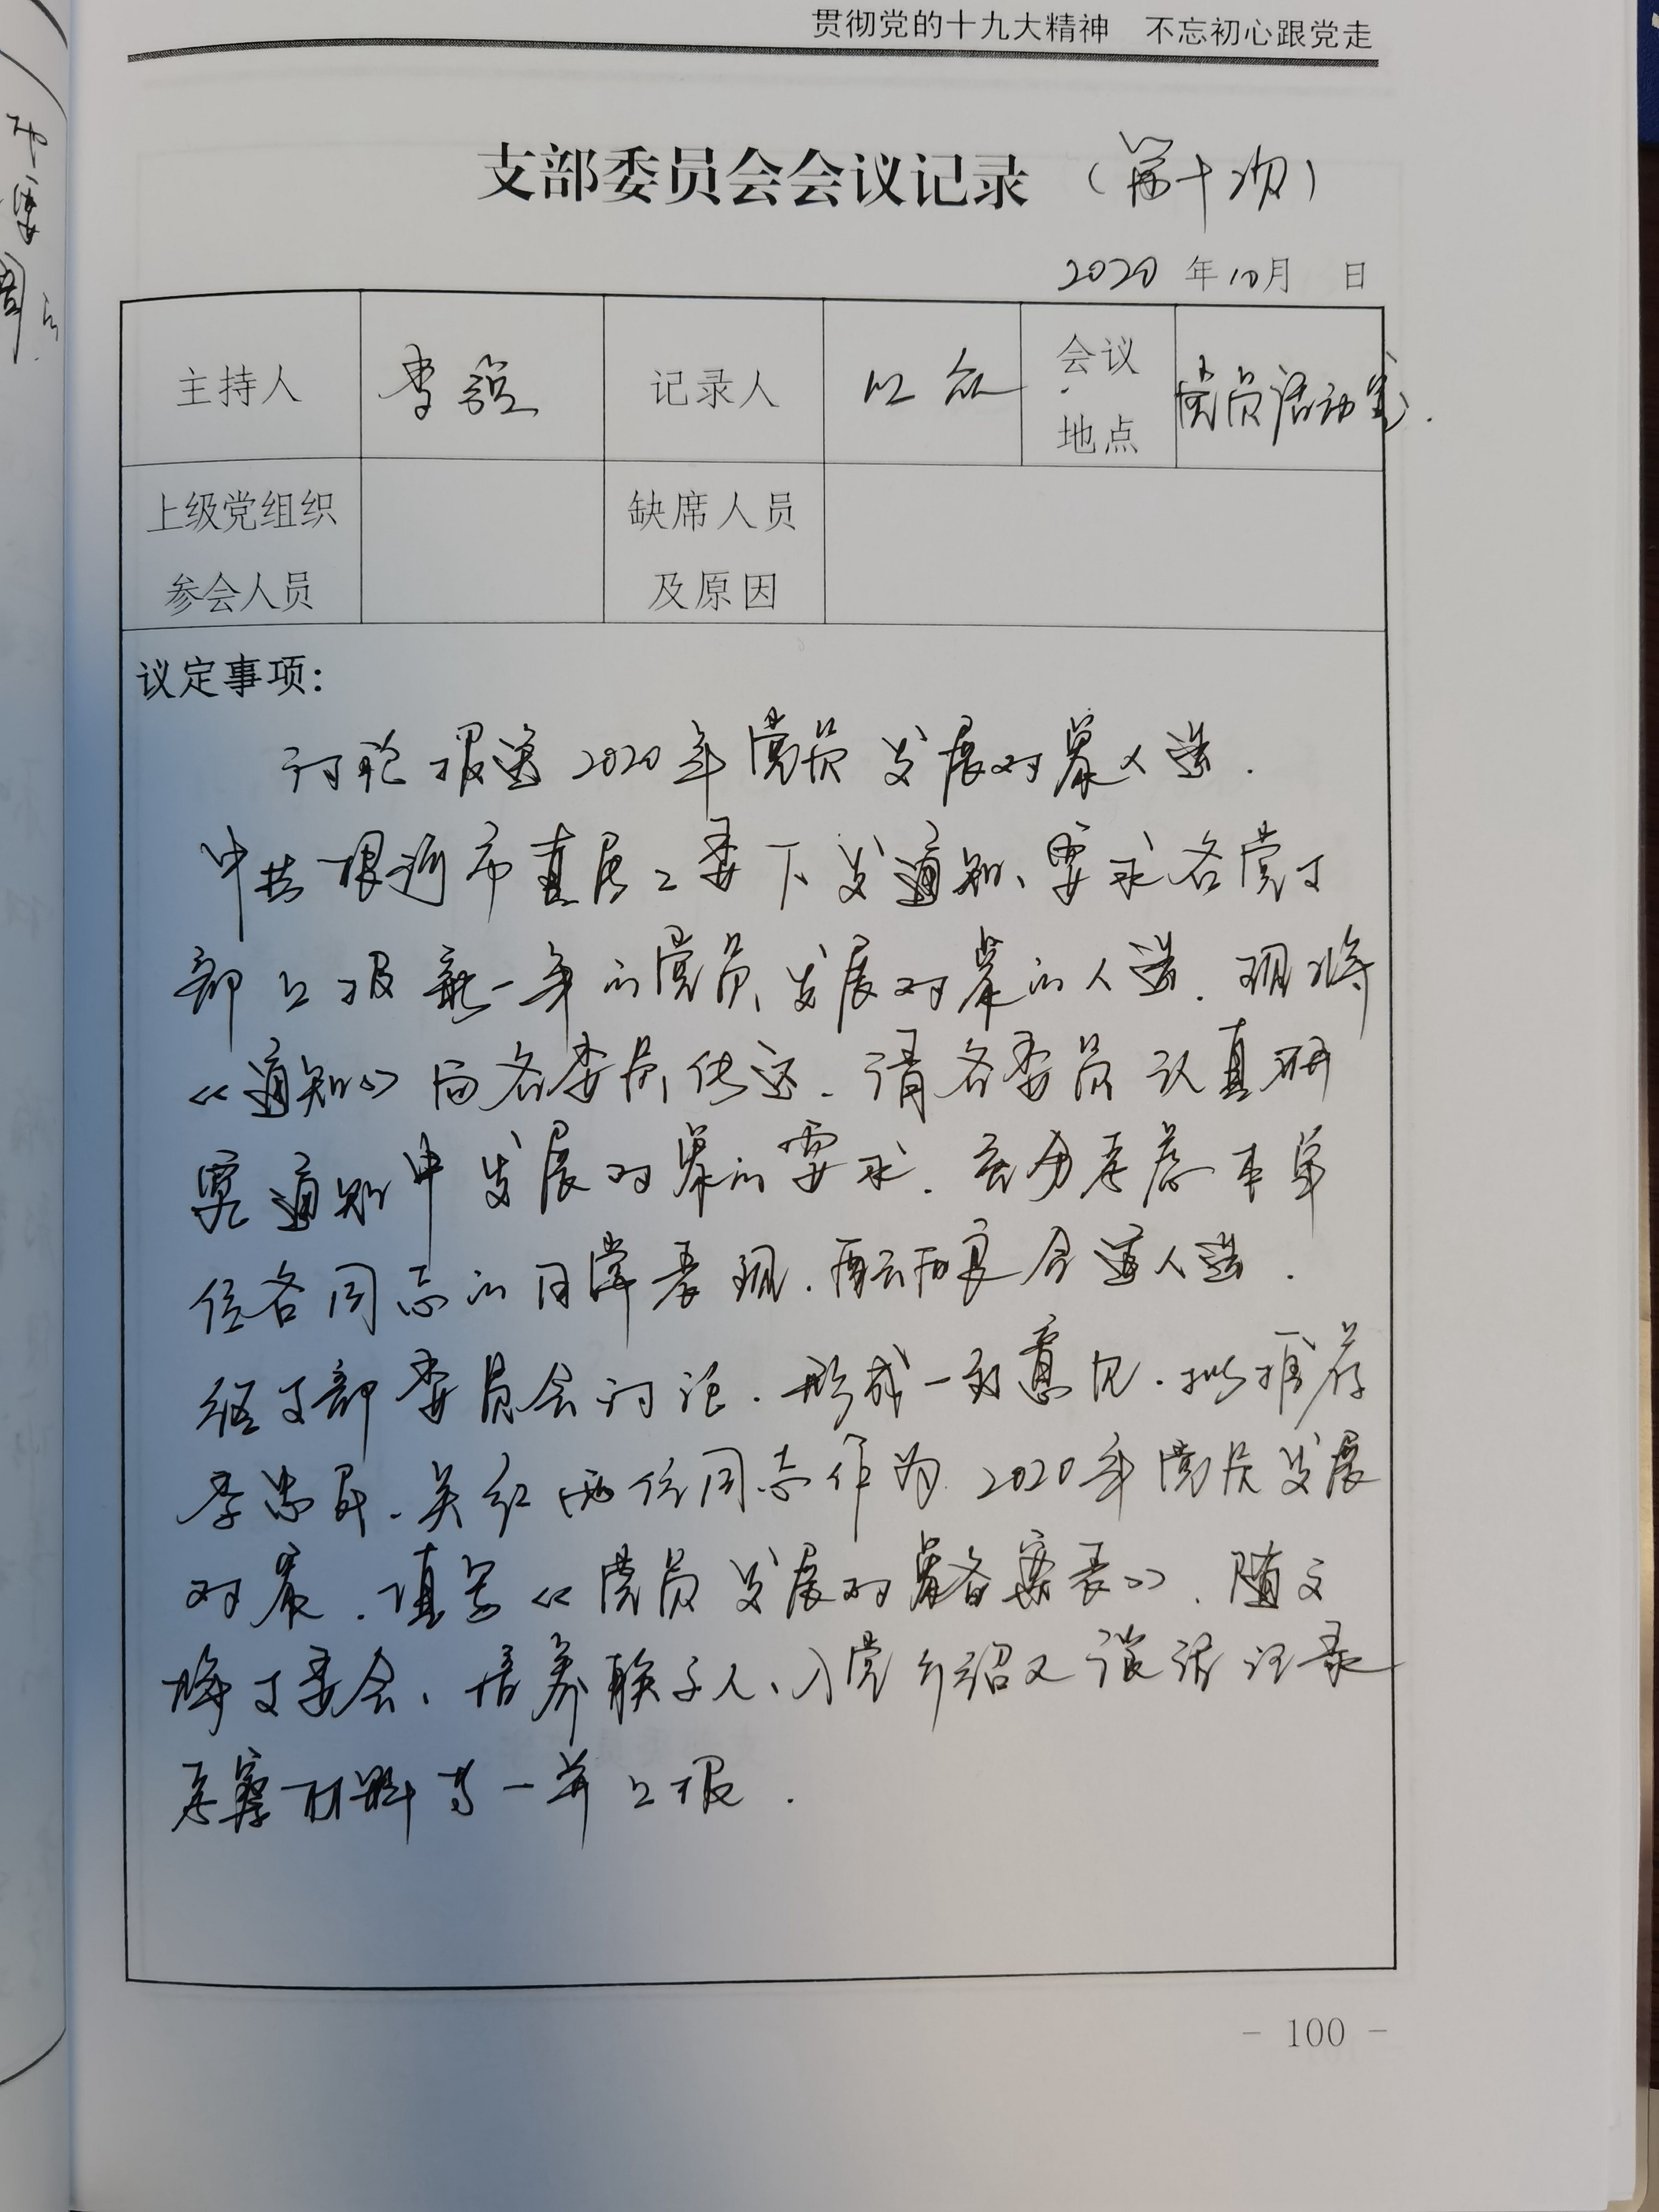 贯彻党的十九大精神 不忘初心跟党走
支部委员会会议记录 (第十次)
2020 年 10 月 日
主持人 李 记录人 会议地点 党员活动室.
上级党组织参会人员 缺席人员及原因
议定事项:
讨论报送2020年党员发展对象人选.
中共根河市直属工委下发通知、要求各党支
部上报新一年的党员发展对象的人选. 现将
《通知》向各委员传达. 请各委员认真研
究通知中发展对象的要求. 考察本单
位各同志的日常表现. 合适人选.
经支部委员会讨论. 形成一致意见. 拟推荐
李忠民. 关红两位同志作为 2020年党员发展
对象. 填写《党员发展对象备案表》. 随文
将支委会、培养联系人、入党介绍人谈话记录
考察材料等一并上报.
- 100 -